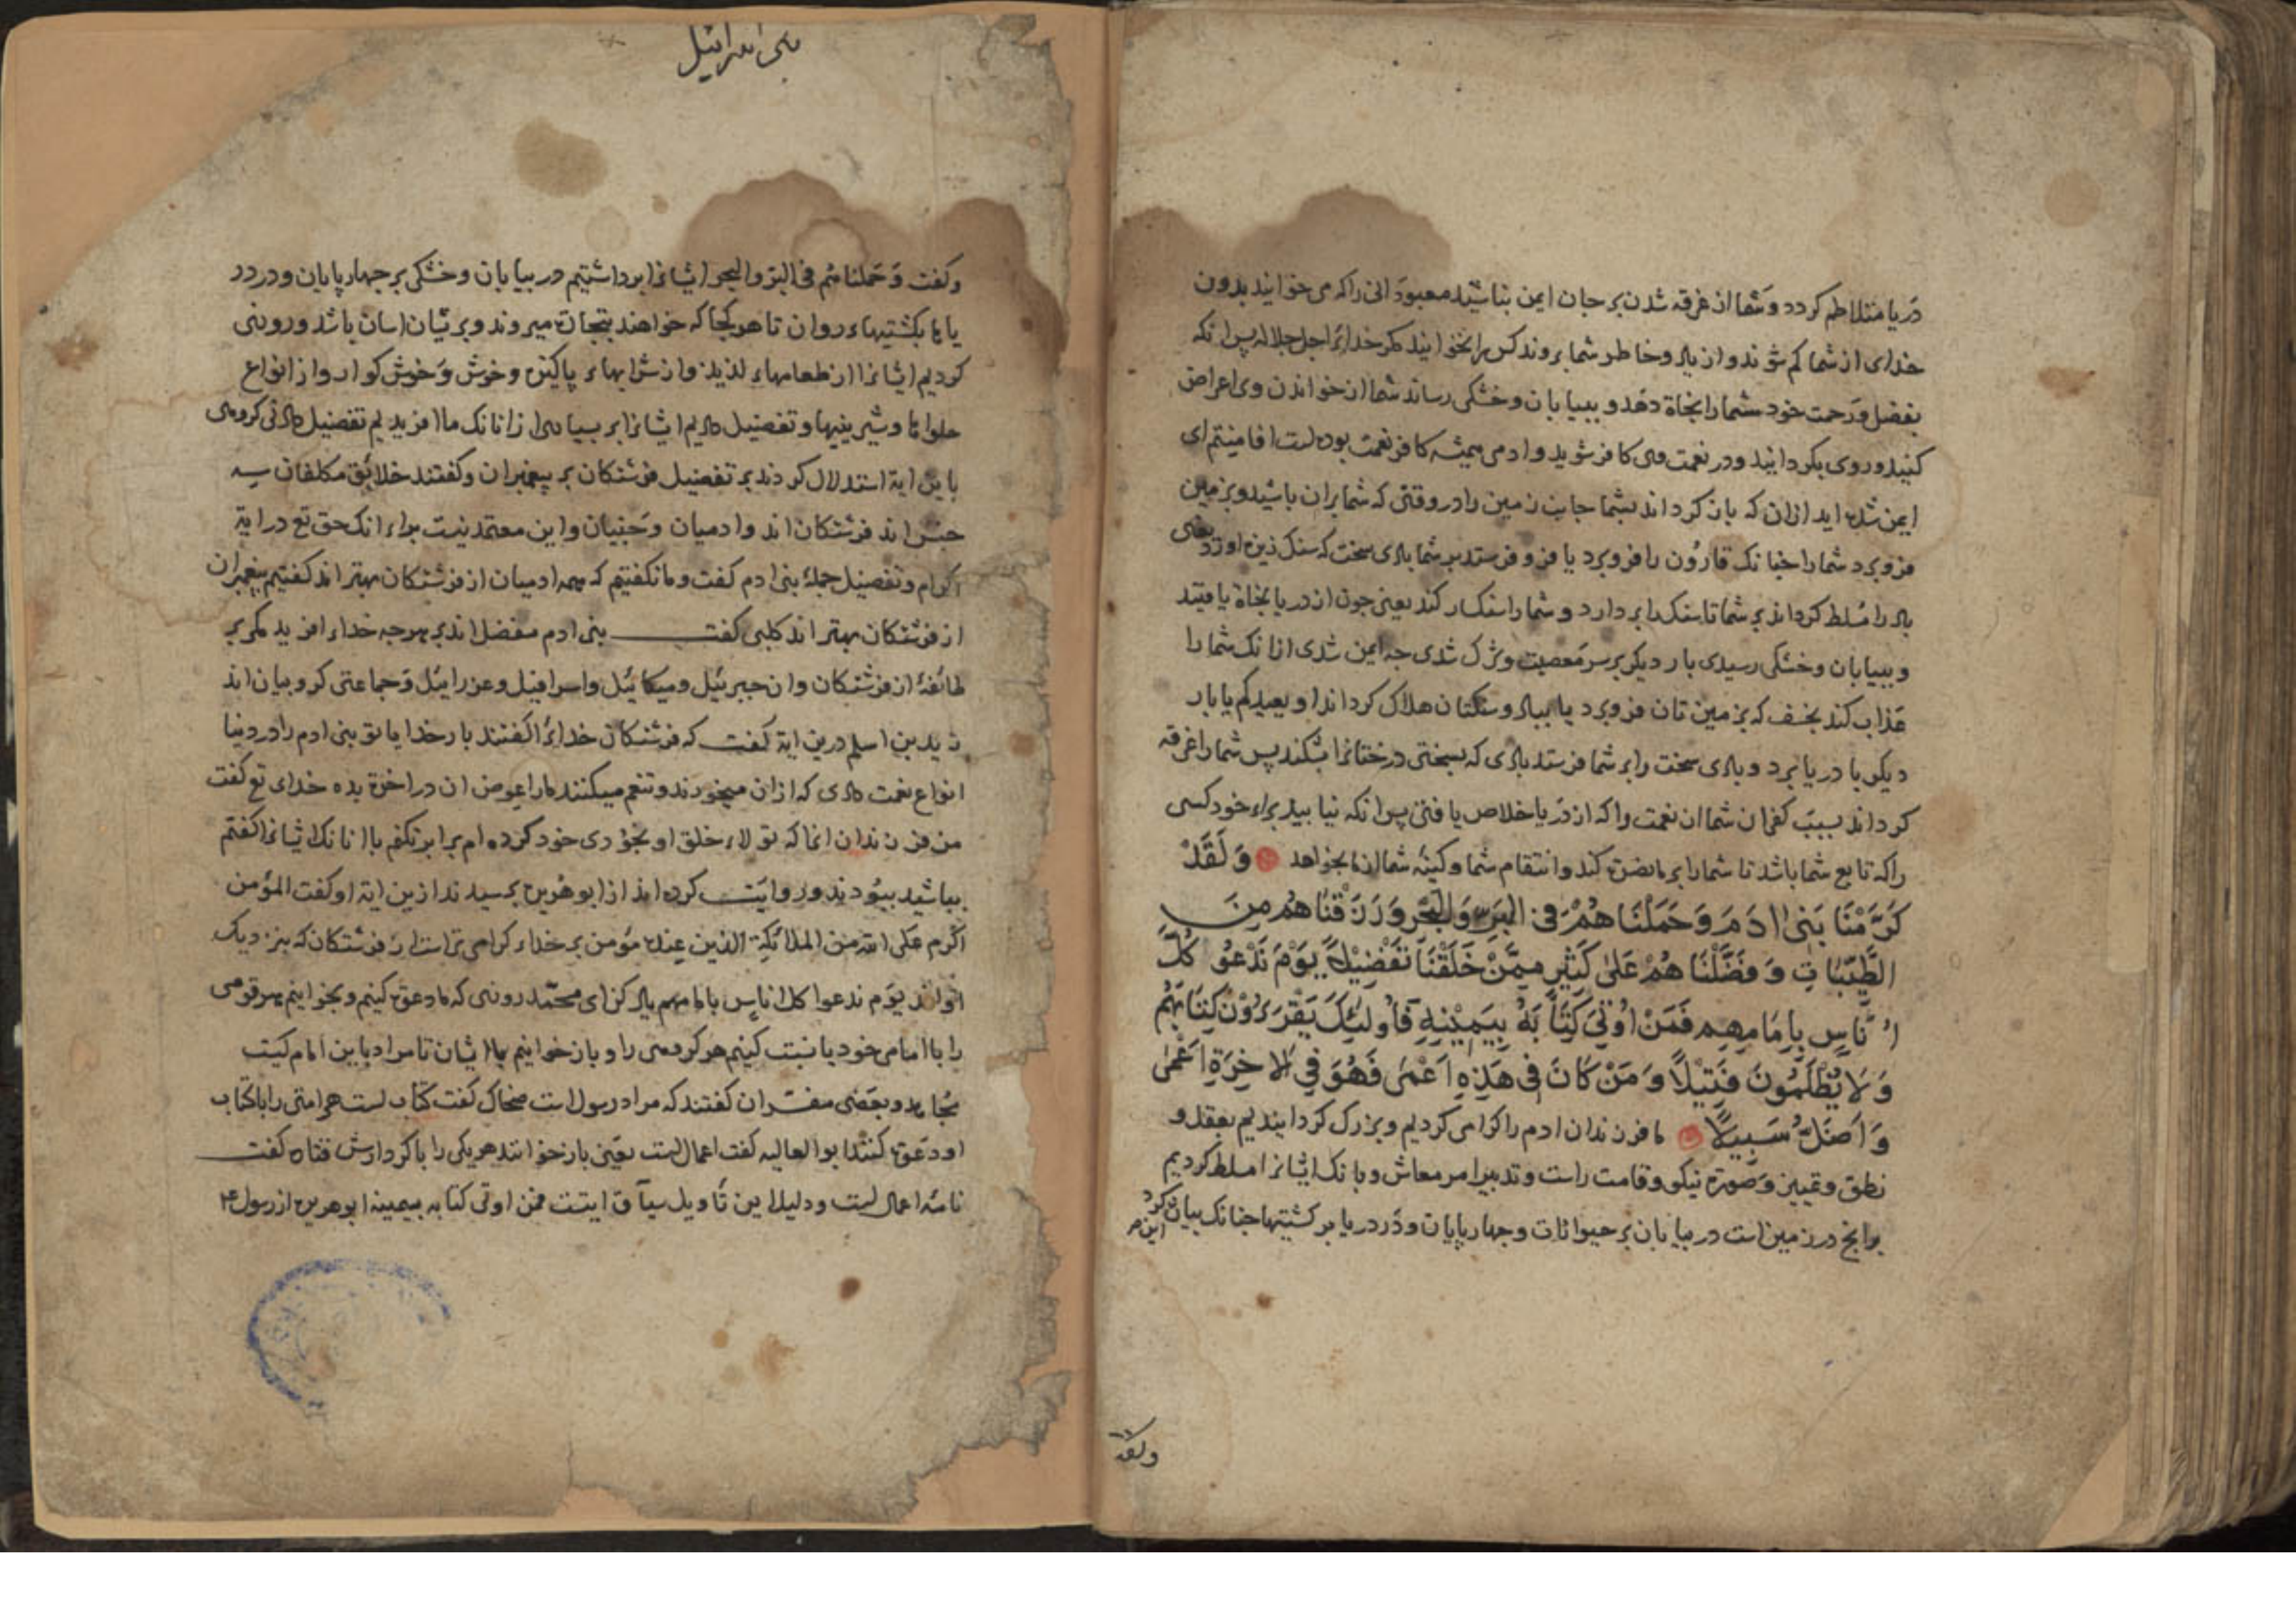 دریا متلاطم کردد وشما از غرقه شدن بر جان ایمن نباشید معبودانی راکه می خوانید بدون
خدای از شما کم شوند واز یاد وخاطر شما بروند کس را نخوانید مکر خدایرا جل جلاله پس انکه
بفضل ورحمت خود شمارا نجاة دهد و ببیابان وخشکی رساند شما از خواندن وی اعراض
کنید وروی بکردانید ودر نعمت وی کافر شوید وادمی همیشه کافر نعمت بوده است افامنتم ای
ایمن شده اید ازان که باز کرداند بشما جانب زمین را در وقتی که شما بران باشید وبزمین
فرو برد شمارا چنانک قارون را فرو برد یا فرو فرستد بر شما بادی سخت که سنک ریزه اورد یعنی
باد را مسلط کرداند بر شما تا سنک را بر دارد و شمارا سنکسار کند یعنی چون از دریا نجاة یافتید
و ببیابان وخشکی رسیدی بار دیکر بر سر معصیت وشرک شدی چه ایمن شدی ازانک شمارا
عذاب کند بخسف که بزمین تان فرو برد یا بباد وسنکتان هلاک کرداند او یعیدکم یا بار
دیکر با دریا برد و بادی سخت را بر شما فرستد بادی که بسختی درختانرا بشکند پس شمارا غرقه
کرداند بسبب کفران شما ان نعمت را که از دریا خلاص یافتی پس انکه نیابید برای خود کسی
راکه تابع شما باشد تا شمارا بر ما نصرة کند وانتقام شما وکینه شما از ما بخواهد وَلَقَدْ
كَرَّمْنَا بَنِي ادَمَ وَحَمَلْنَاهُمْ فِي الْبَرِّ وَالْبَحْرِ وَرَزَقْنَاهُم مِنَ
الطَّيِّبَاتِ وَفَضَّلْنَاهُمْ عَلَى كَثِيرٍ مِمَّنْ خَلَقْنَا تَفْضِيلًا يَوْمَ نَدْعُو كُلَّ
اُنَاسٍ بِاِمَامِهِم فَمَنْ اُوتِيَ كِتَابَهُ بِيَمِينِهِ فَاُولَئِكَ يَقْرَءُوْنَ كِتَابَهُمْ
وَلَا يُظْلَمُونَ فَتِيلًا وَمَنْ كَانَ فِي هَذِهِ اَعْمَى فَهُوَ فِي الاخِرَةِ اَعْمَى
وَاَضَلُّ سَبِيلًا ما فرزندان ادم را کرامی کردیم وبزرک کردانیدیم بعقل و
نطق وتمییز وصورة نیکو وقامت راست وتدبیر امر معاش وبانک ایشانرا مسلط کردیم
برانچ در زمین است در بیابان بر حیوانات وچهارپایان ودر دریا بر کشتیها چنانک بیان کرد
ولقد
بنی اسرائیل
وکفت وحملناهم فی البر والبحر ایشانرا برداشتیم در بیابان وخشکی بر چهارپایان ودر در
یاها بکشتیهاء روان تا هر کجا که خواهند بتجارة میروند وبر یشان اسان باشد وروزی
کردیم ایشانرا از طعامهاء لذیذ واز شرابهاء پاکیزه وخوش وخوش کوار واز انواع
حلواها وشیرینیها وتفضیل دادیم ایشانرا بر بسیاری ازانانک ما افریدیم تفضیل دادنی کروهی
باین ایة استدلال کردند بر تفضیل فرشتکان بر پیغمبران وکفتند خلائق مکلفان سه
جنس اند فرشتکان اند وادمیان وجنیان واین معتمد نیست براء انک حق تع در ایة
اکرام وتفضیل جملهٔ بنی ادم کفت وما نکفتیم که همه ادمیان از فرشتکان بهتر اند کفتیم پیغمبران
از فرشتکان بهتر اند کلبی کفت بنی ادم مفضل اند بر هرچه خداء افرید مکر بر
طائفهٔ از فرشتکان وان جبرئیل ومیکائیل واسرافیل وعزرایئل وجماعتی کروبیان اند
زید بن اسلم درین ایة کفت که فرشتکان خدایرا کفتند بار خدایا تو بنی ادم را در دنیا
انواع نعمت دادی که ازان میخورند وتنعم میکنند مارا عوض ان در اخرة بده خدای تع کفت
من فرزندان انها که تولاء خلق او بخودی خود کرده ام برابر نکنم با انانک ایشانرا کفتم
بباشید ببودند وروایت کرده اند از ابو هریره پرسیدند ازین ایة او کفت المؤمن
اکرم علی الله من الملائکة الذین عنده مؤمن بر خداء کرامی تر است از فرشتکان که بنزدیک
اواند یوم ندعوا کل اناس بامامهم یاد کن ای محمد روزی که ما دعوة کنیم وبخوانیم هر قومی
را با امامی خود یا نسبت کنیم هر کروهی را وباز خوانیم بامام ایشان تا مراد باین امام کیست
مجاهد وبعضی مفسران کفتند که مراد رسول است ضحاک کفت کتاب است هر امتی را باکتاب
او دعوة کنند ابو العالیه کفت اعمال است یعنی باز خوانند هر یکی را با کردارش قتاده کفت
نامه اعمال است ودلیل این تاویل سیاق ایتست فمن اوتی کتابه بیمینه ابو هریره از رسول ع